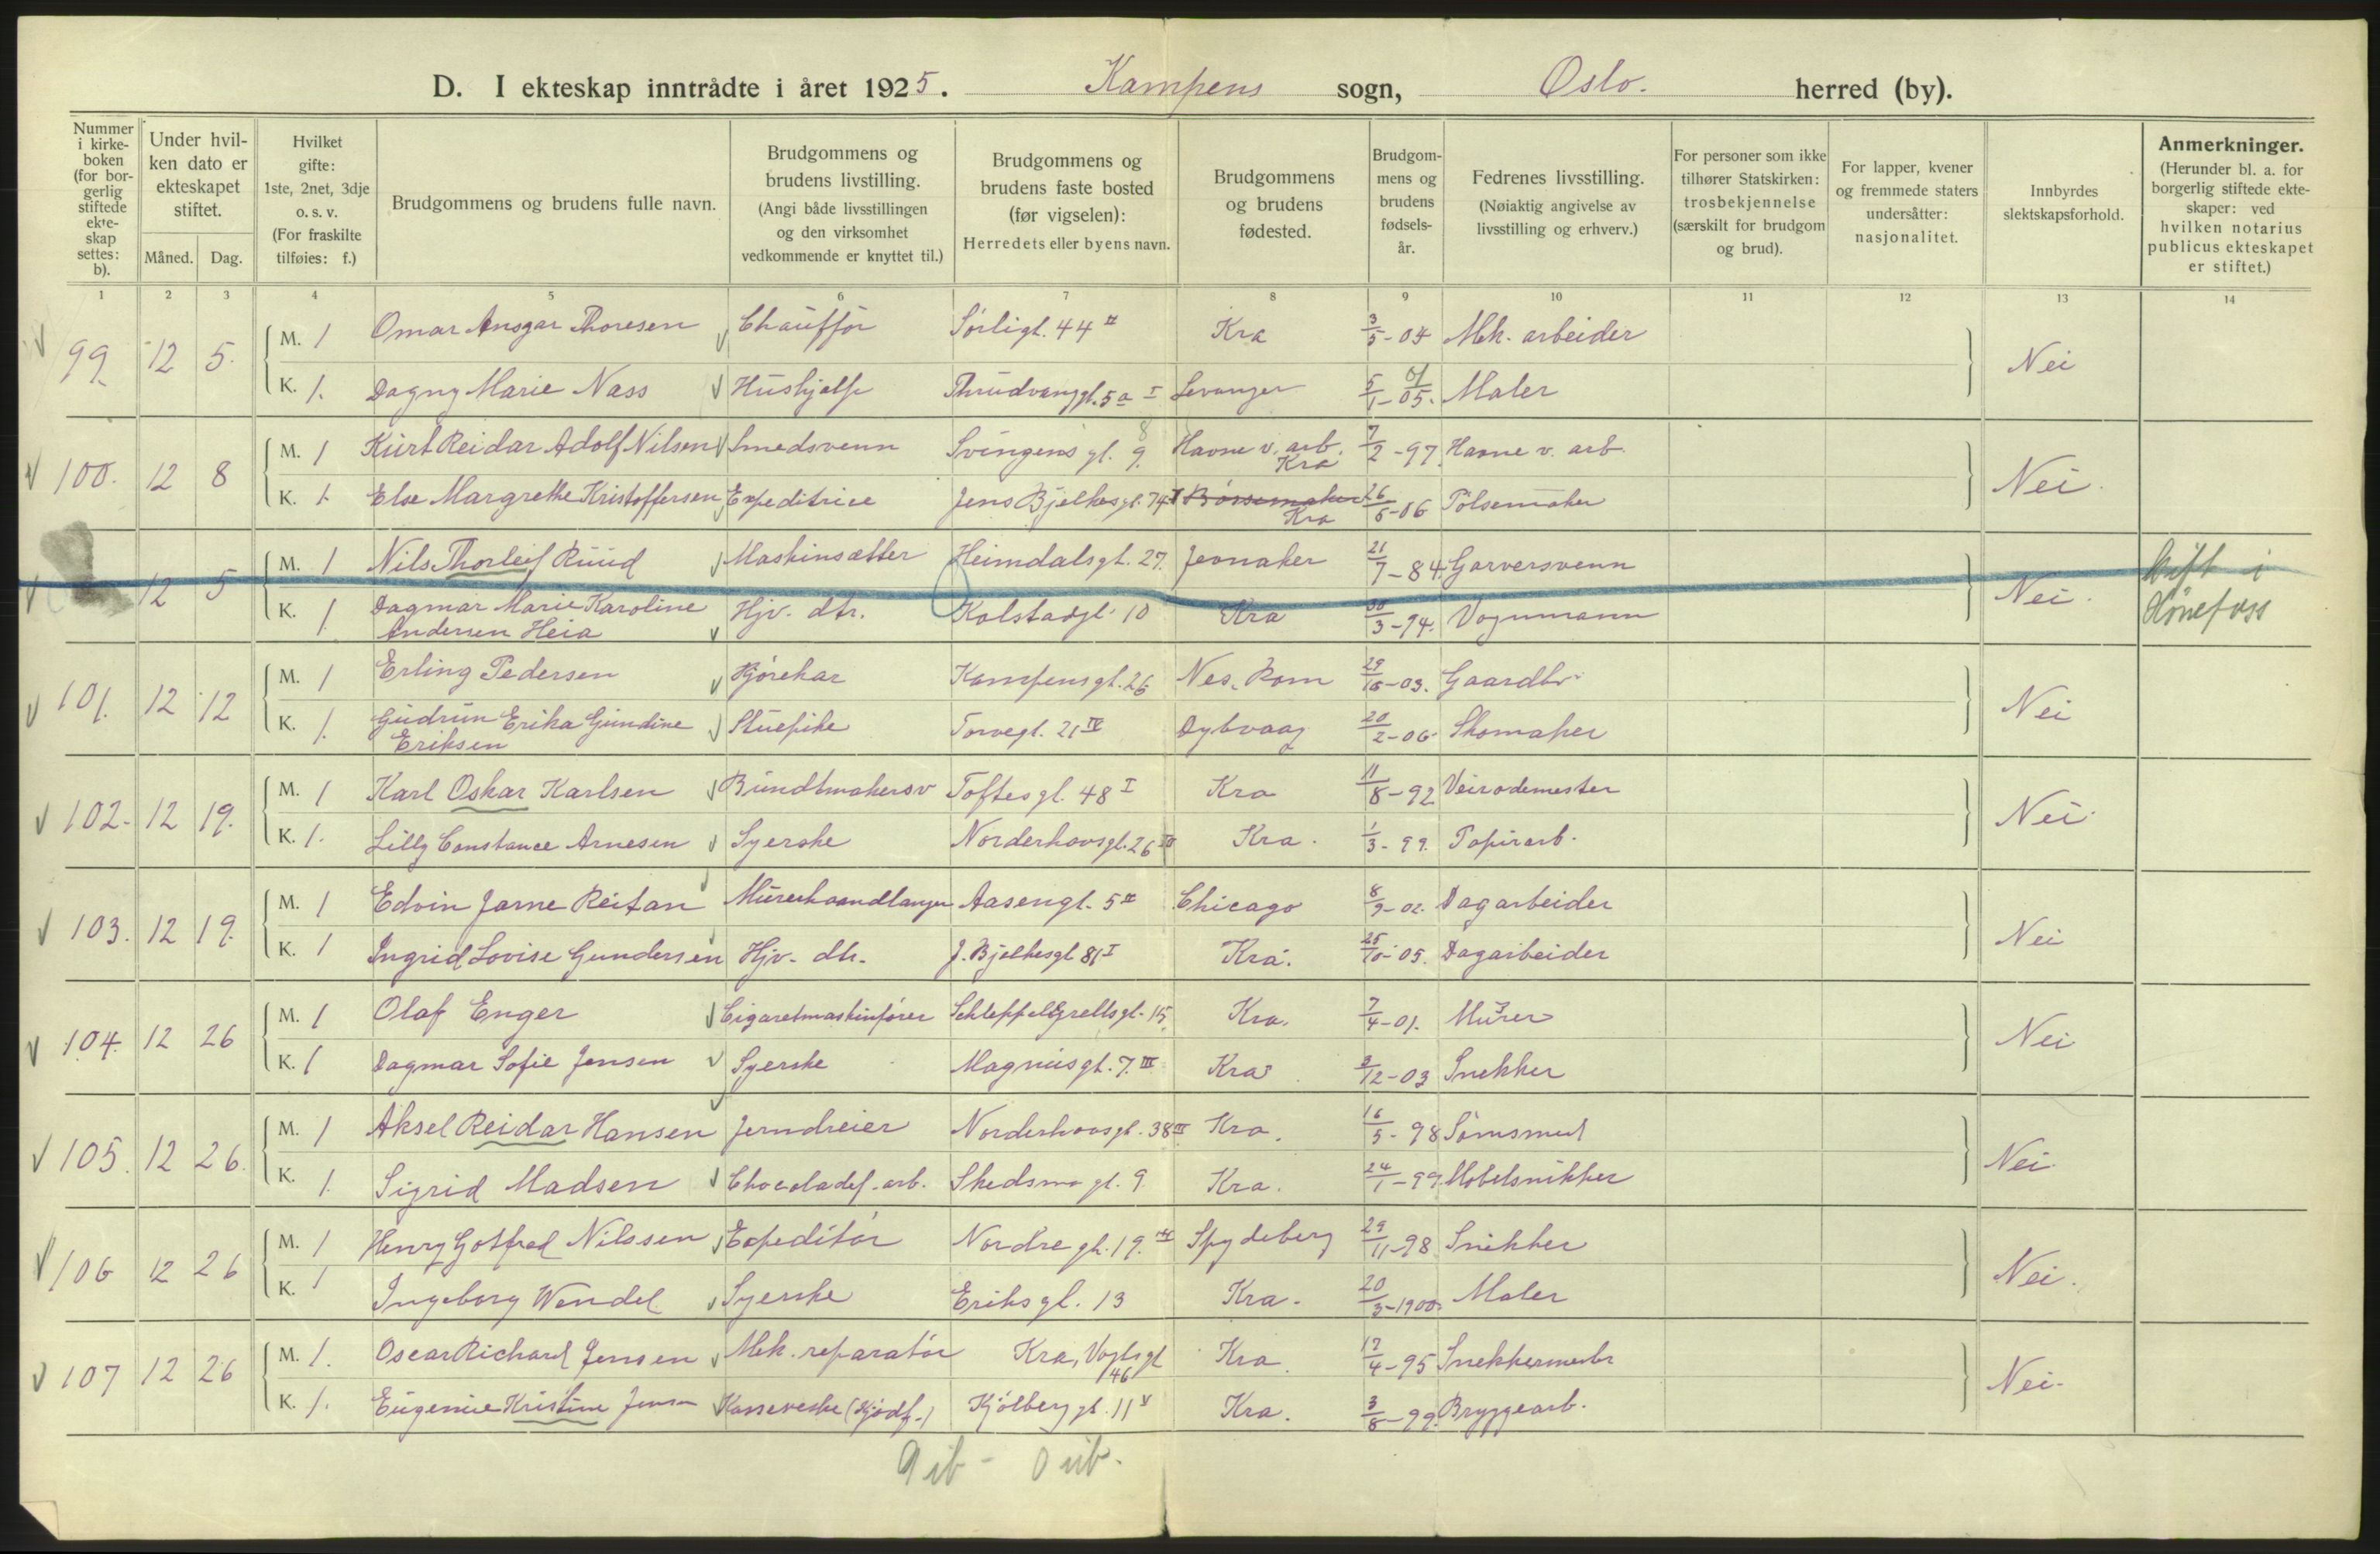 D. I ekteskap inntrådte i året 1925. Kampens sogn, Oslo. herred (by).
Nummer i kirke-boken (for bor-gerlig stiftede ekte-skap settes: b).
Under hvil-ken dato er ekteskapet stiftet.
Måned. Dag.
Hvilket gifte: 1ste, 2net, 3dje o. s. v. (For fraskilte tilføies: f.)
Brudgommens og brudens fulle navn.
Brudgommens og brudens livstilling. (Angi både livsstillingen og den virksomhet vedkommende er knyttet til.)
Brudgommens og brudens faste bosted (før vigselen): Herredets eller byens navn.
Brudgommens og brudens fødested.
Brudgom-mens og brudens fødsels-år.
Fedrenes livsstilling. (Nøiaktig angivelse av livsstilling og erhverv.)
For personer som ikke tilhører Statskirken: trosbekjennelse (særskilt for brudgom og brud).
For lapper, kvener og fremmede staters undersåtter: nasjonalitet.
Innbyrdes slektskapsforhold.
Anmerkninger. (Herunder bl. a. for borgerlig stiftede ekte-skaper: ved hvilken notarius publicus ekteskapet er stiftet.)
1 2 3 4 5 6 7 8 9 10 11 12 13 14
99 12 5. M. 1 Omar Ansgar Thoresen Chauffør Sørligt. 44 II Kra 3/5-04 Mek. arbeider Nei
K. 1. Dagny Marie Nass Hushjelp Thrudvanggt. 5a I Levanger 5/1-05. 01 Maler
100. 12 8 M. 1 Kurt Reidar Adolf Nilsen Smedsvenn Svingens gt. 9. 8 Havne v. arb. Kra 7/2-97. Havne v. arb. Nei.
K. 1. Else Margrethe Kristoffersen Expeditrice Jens Bjelkes gt. 74 I Børsemaker Kra 26/6-06 Pølsemaker
12 5 M. 1 Nils Thorleif Ruud Maskinsætter Heimdalsgt. 27. Jevnaker 21/7-84. Garversvenn Nei. Gift i Hønefoss
K. 1 Dagmar Marie Karoline Andersen Heia Hjv. dtr. Kolstadgt. 10 Kra 30/3-94. Vognmann
101. 12 12 M. 1 Erling Pedersen Kjørekar Kampensgt. 26 Nes. Rom 29/10-03. Gaardbr. Nei
K. 1. Gudrun Erika Gundine Eriksen Stuepike Torvegt. 21 IV Dybvaag 20/2-06. Skomaker
102. 12 19. M. 1 Karl Oskar Karlsen Bundtmakersv Toftesgt. 48 I Kra 11/8-92 Veirodemester Nei.
K. 1. Lilly Constance Arnesen Syerske Norderhovsgt. 26 III Kra. 1/3-99. Papirarb.
103. 12 19. M. 1 Edvin Jarne Reitan Murerhaandlanger Aasengt. 5 II Chicago 8/9-02. Dagarbeider Nei
K. 1 Ingrid Lovise Gundersen Hjv. dtr. J. Bjelkesgt 81 I Kra. 25/10-05. Dagarbeider
104. 12 26 M. 1 Olaf Enger Cigaretmaskinfører Schleppegrellsgt. 15. Kra. 7/4-01. Murer Nei
K. 1 Dagmar Sofie Jensen Syerske Magnusgt. 7. III Kra 3/12-03 Snekker
105. 12 26. M. 1 Aksel Reidar Hansen Jerndreier Norderhovsgt. 38 III Kra. 16/5-98 Sømsmed Nei.
K. 1. Sigrid Madsen Chocoladef. arb. Skedsmogt. 9 Kra. 24/1-99. Møbelsnikker
106 12 26 M. 1 Henry Gotfred Nilssen Expeditør Nordregt. 19. IV Spydeberg 29/11-98 Snikker Nei.
K. 1 Ingeborg Wendel Syerske Eriksgt. 13 Kra. 20/3-1900. Maler
107 12 26 M. 1. Oscar Richard Jensen Mek. reparatør Kra, Vogtsgt 46 Kra. 17/4-95 Snekkermester Nei.
K. 1. Eugenie Kristine Jensen Kasserske (Kjødf.) Kjølberggt. 11 V Kra. 3/8-99. Bryggearb.
9 ib - 0 uib.